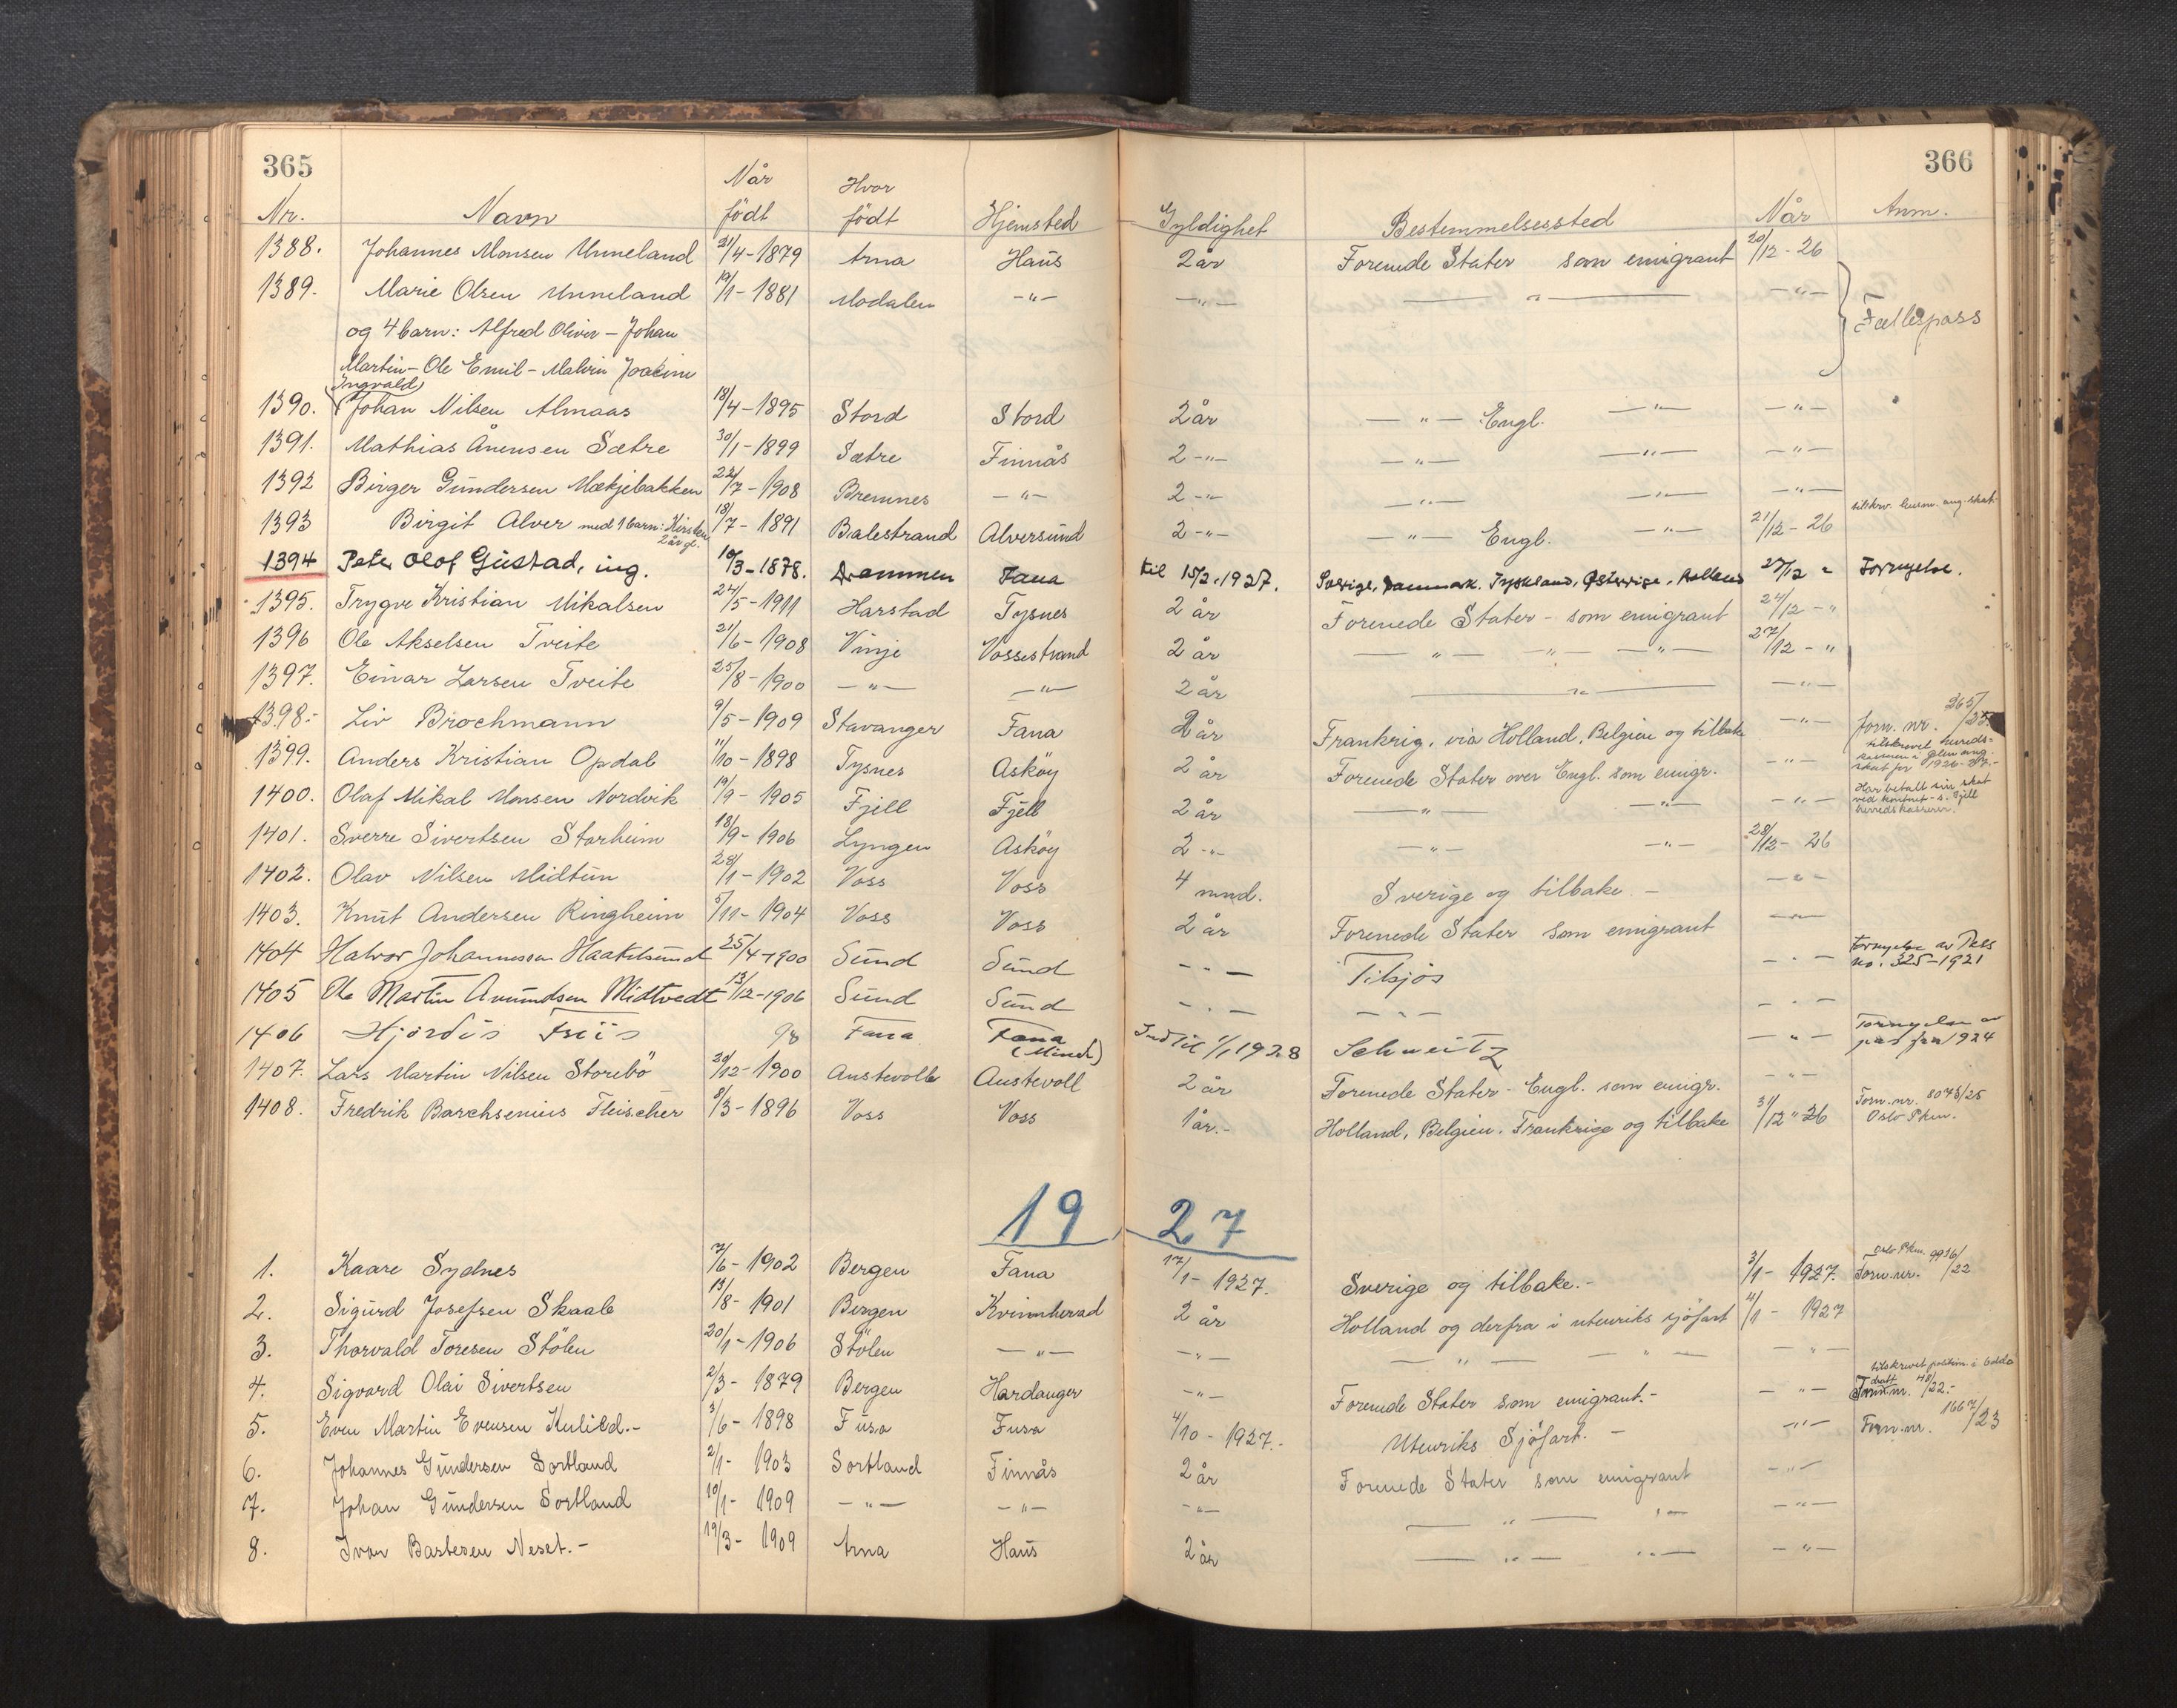 365 366
Nr. Navn Når født Hvor født Hjemsted Gyldighet Bestemmelsessted Når Anm.
1388. Johannes Monsen Unneland 21/4-1879 Arna Haus 2 år Forenede Stater som emigrant 20/12-26
1389. Marie Olsen Unneland 19/1-1881 Modalen -"- -"- -"- -"- Fællespass
og 4 barn: Alfred Oliver - Johan
Martin - Ole Emil - Malvin Joakim
Ingvald
1390. Johan Nilsen Almaas 18/4-1895 Stord Stord 2 år -"- Engl. -"- -"-
1391. Mathias Ånensen Sætre 30/1-1899 Sætre Finnås 2 -"- -"- -"- -"-
1392 Birger Gundersen Mækjebakken 22/7-1908 Bremnes -"- 2 -"- -"- -"- -"-
1393 Birgit Alver med 1 barn: Kirsten 2 år gl. 18/7-1891 Balestrand Alversund 2 -"- -"- Engl. -"- 21/12-26 tilskrev. lensm. ang. skat.
1394 Peter Olof Gustad, ing. 10/3-1878. Drammen Fana til 15/2.1927. Sverige, Danmark. Tyskland, Østerrige, Holland 27/12 " Fornyelse.
1395. Trygve Kristian Mikalsen 24/5-1911 Harstad Tysnes 2 år Forenede Stater - som emigrant 24/12 - "
1396 Ole Akselsen Tveite 21/6-1908 Vinje Vossestrand 2 år -"- -"- -"- 27/12 - "
1397. Einar Larsen Tveite 25/8-1900 -"- -"- 2 år -"- -"-
1398.- Liv Brochmann 9/5-1909 Stavanger Fana 2 år Frankrig, via Holland, Belgien og tilbake -"- forn. nr. 265/25.
1399. Anders Kristian Opdal 11/10-1898 Tysnes Askøy 2 år Forenede Stater over Engl. som emigr. -"- tilskrevet herreds-
kasserer i ang.
skat for 1926-27.-
1400. Olaf Mikal Monsen Nordvik 19/9-1905 Fjell Fjell 2 år -"- -"- -"- Har betalt sin skat
ved kontnt - s. Fjell
herredskasserer.
1401. Sverre Sivertsen Storheim 18/9-1906 Lyngen Askøy 2 -"- -"- -"- 28/12-26
1402. Olav Nilsen Midtun 28/1-1902 Voss Voss 4 mnd. Sverige og tilbake - -"-
1403. Knut Andersen Ringheim 5/11-1904 Voss Voss 2 år Forenede Stater som emigrant -"-
1404 Halvor Johannessen Haakelsund 25/4-1900 Sund Sund -"- Tilsjøs -"- Fornyelse av Pass
no. 325-1921
1405 Ole Martin Amundsen Midtvedt 13/12-1906 Sund Sund -"- -"- -"-
1406 Hjørdis Friis 98 Fana Fana Indtil 1/1 1928 Schweitz -"- Fornyelse av
pas fra 1924
1407. Lars Martin Nilsen Storebö 30/12-1900 Austevoll Austevoll 2 år Forenede Stater - Engl. som emigr. -"-
1408. Fredrik Barchsenius Fleischer 8/3-1896 Voss Voss 1 år.- Holland, Belgien. Frankrige og tilbake 31/12 " 26 Forn. nr. 8073/25
Oslo Pkm.
1927
1. Kaare Sydnes 7/6-1902 Bergen Fana 17/1-1927. Sverige og tilbake.- 3/1-1927. Oslo Pkm. Forn. nr. 9936/22
2. Sigurd Josefsen Skaale 13/8-1901 Bergen Kvinnherad 2 år Holland og derfra i utenriks sjöfart 4/1-1927
3. Thorvald Toresen Stölen 20/1-1906 Stölen -"- -"- -"- -"- -"-
4. Sigvard Olai Sivertsen 2/3-1879 Bergen Hardanger -"- Forenede Stater som emigrant.- -"- tilskrevet politim. i Odda
48/22.-
5. Even Martin Evensen Kulild.- 3/6-1898 Fusa Fusa 4/10-1927.- Utenriks Sjöfart. - -"- Forn. nr. 1667/23
6. Johannes Gundersen Sortland 2/1-1903 Sortland Finnås 2 år Forenede Stater som emigrant -"-
7. Johan Gundersen Sortland 10/1-1909 -"- -"- -"- -"- "- -"-
8. Ivar Bastesen Neset.- 19/3-1909 Arna Haus 2 år -"- "- -"-